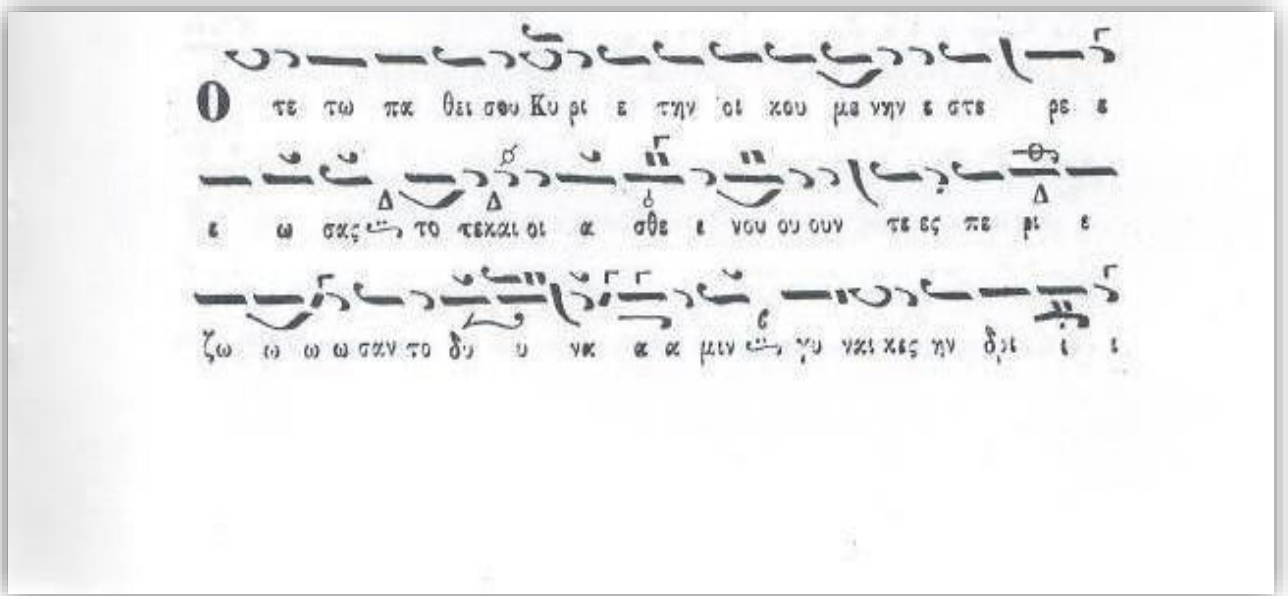 Ο τε τω πα θει σου Κυ ρι ε την οι κου με νην ε στε ρε ε
ε ω σας το τε και οι α σθε ε νου ου ουν τε ες πε ρι ε
ζω ω ω ω σαν το δυ υ να α α μιν γυ ναι κες ην δρι ι ι